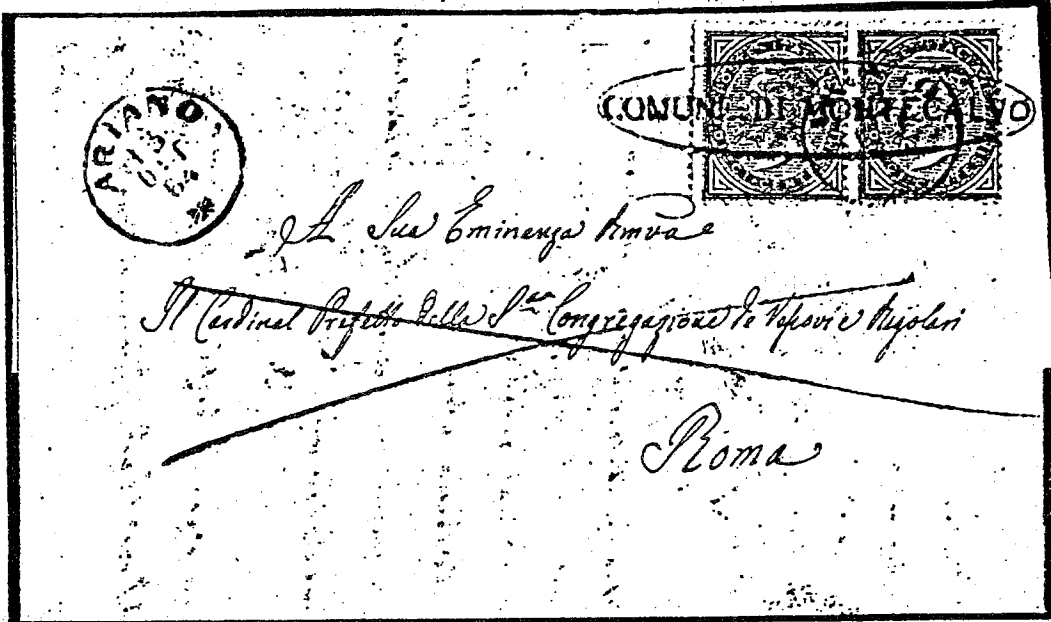 COMUNE DI MONTECALVO
ARIANO
DIC
64
A Sua Eminenza Rmva
Il Cardinal Prefetto della S. Congregazione de Vescovi e Regolari
Roma